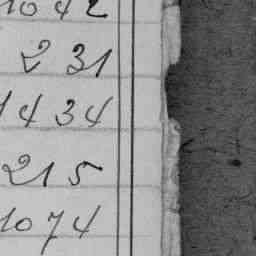 1042
231
1434
215
1074